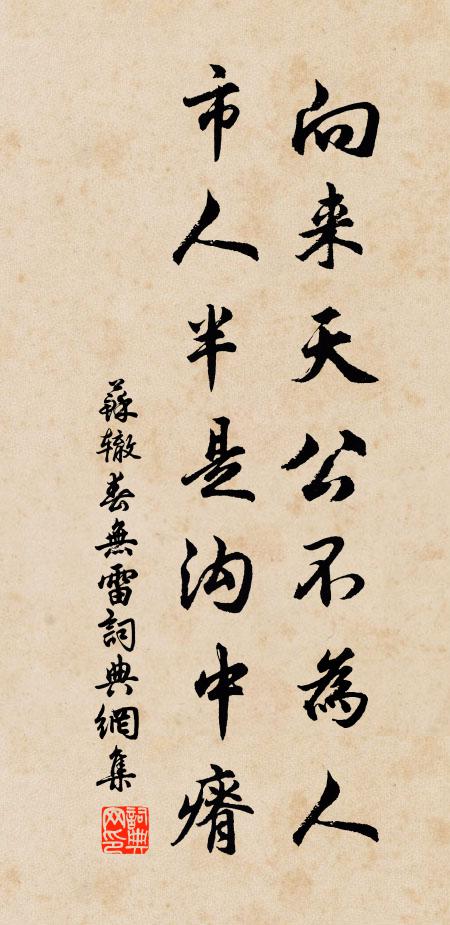 向来天公不為人
市人半是沟中瘠
蘇辙春無雷詞典網集
詞典
网印